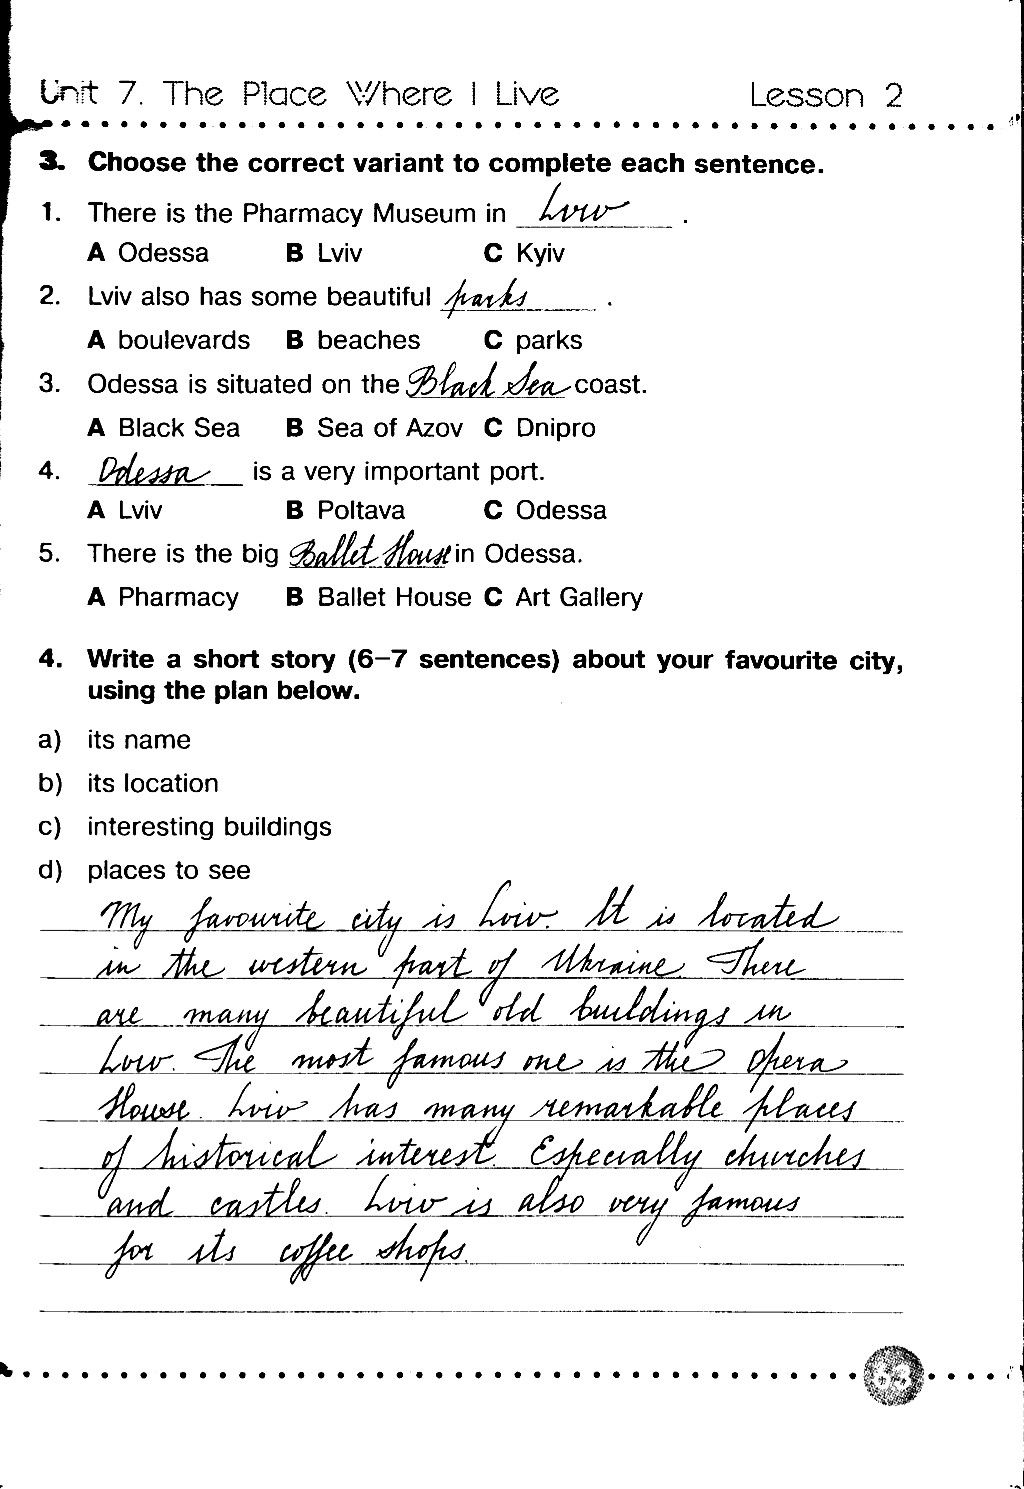 Unit 7. The Place Where I Live Lesson 2
3. Choose the correct variant to complete each sentence.
1. There is the Pharmacy Museum in Lviv .
A Odessa B Lviv C Kyiv
2. Lviv also has some beautiful parks .
A boulevards B beaches C parks
3. Odessa is situated on the Black Sea coast.
A Black Sea B Sea of Azov C Dnipro
4. Odessa is a very important port.
A Lviv B Poltava C Odessa
5. There is the big Ballet House in Odessa.
A Pharmacy B Ballet House C Art Gallery
4. Write a short story (6–7 sentences) about your favourite city,
using the plan below.
a) its name
b) its location
c) interesting buildings
d) places to see
My favourite city is Lviv. It is located
in the western part of Ukraine. There
are many beautiful old buildings in
Lviv. The most famous one is the Opera
House. Lviv has many remarkable places
of historical interest. Especially churches
and castles. Lviv is also very famous
for its coffee shops.
63